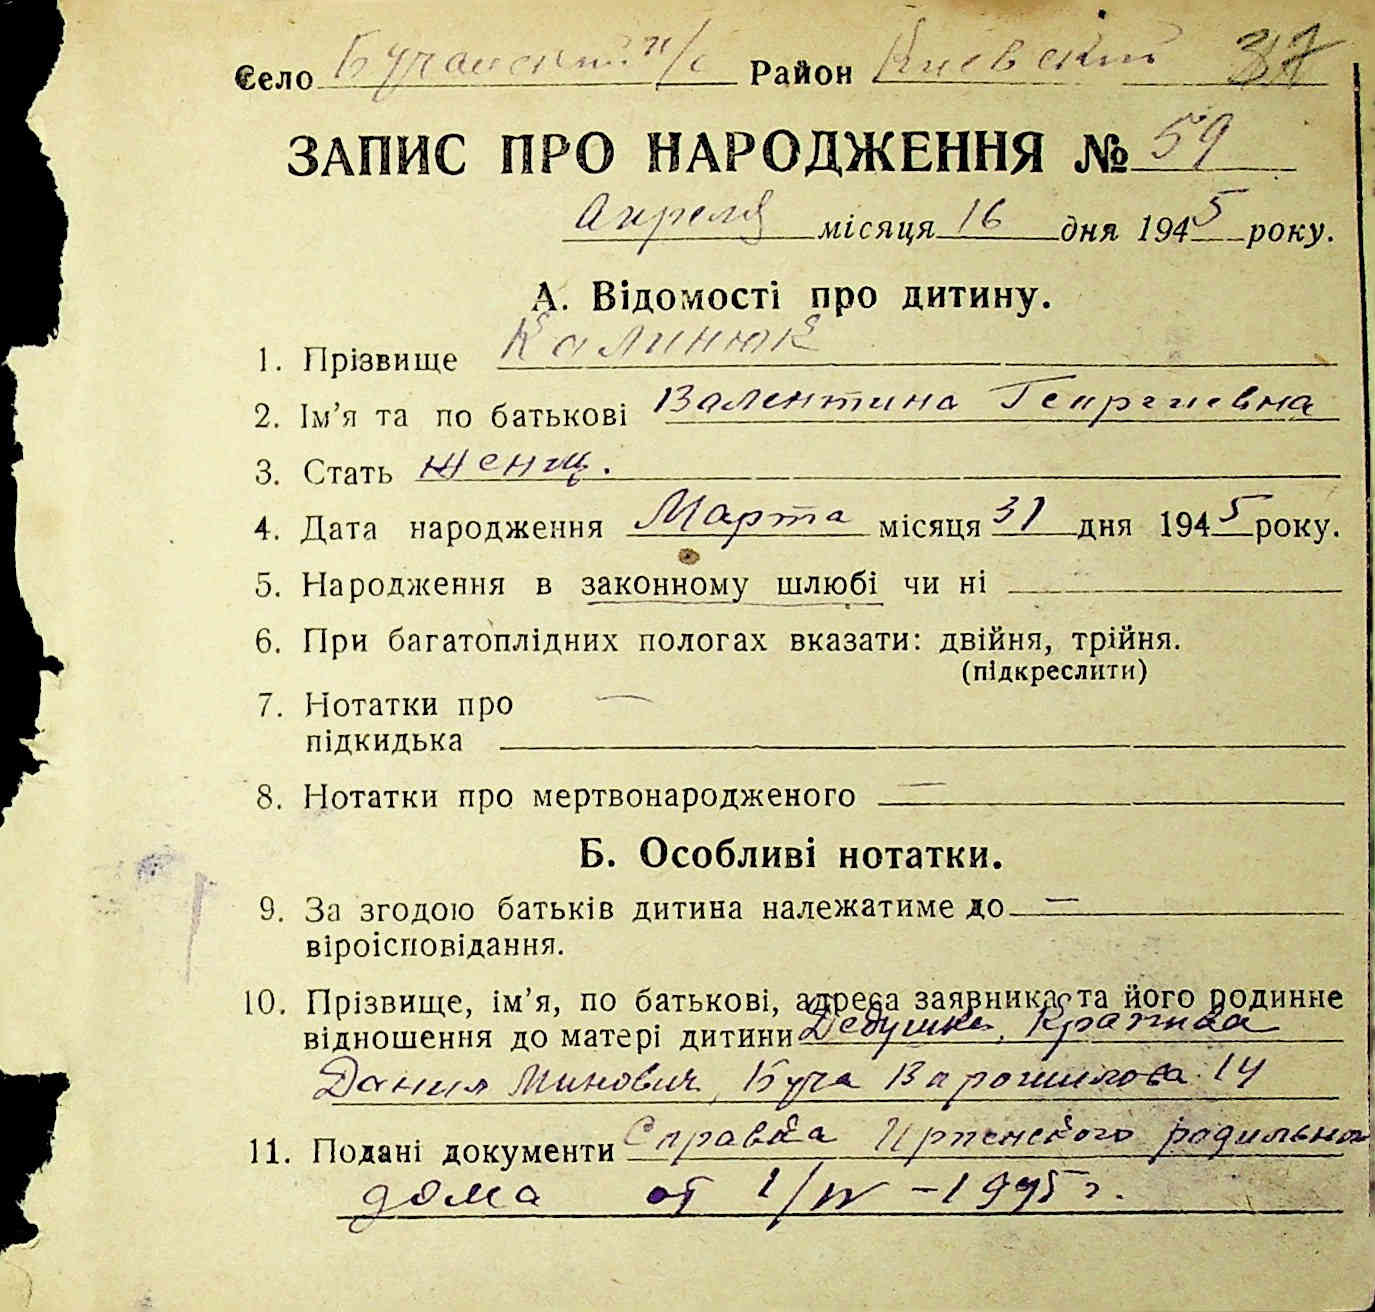 Село Бучанский п/с Район Киевский 37
ЗАПИС ПРО НАРОДЖЕННЯ № 59
Апреля місяця 16 дня 1945 року.
А. Відомості про дитину.
1. Прізвище Калинюк
2. Ім'я та по батькові Валентина Георгиевна
3. Стать женщ.
4. Дата народження Марта місяця 31 дня 1945 року.
5. Народження в законному шлюбі чи ні
6. При багатоплідних пологах вказати: двійня, трійня.
(підкреслити)
7. Нотатки про —
підкидька
8. Нотатки про мертвонародженого —
Б. Особливі нотатки.
9. За згодою батьків дитина належатиме до —
віроісповідання.
10. Прізвище, ім'я, по батькові, адреса заявника та його родинне
відношення до матері дитини Дедушка, Крапива
Данил Минович, Буча Ворошилова 14
11. Подані документи Справка Ирпенского родильного
дома от 1/IV - 1945 г.